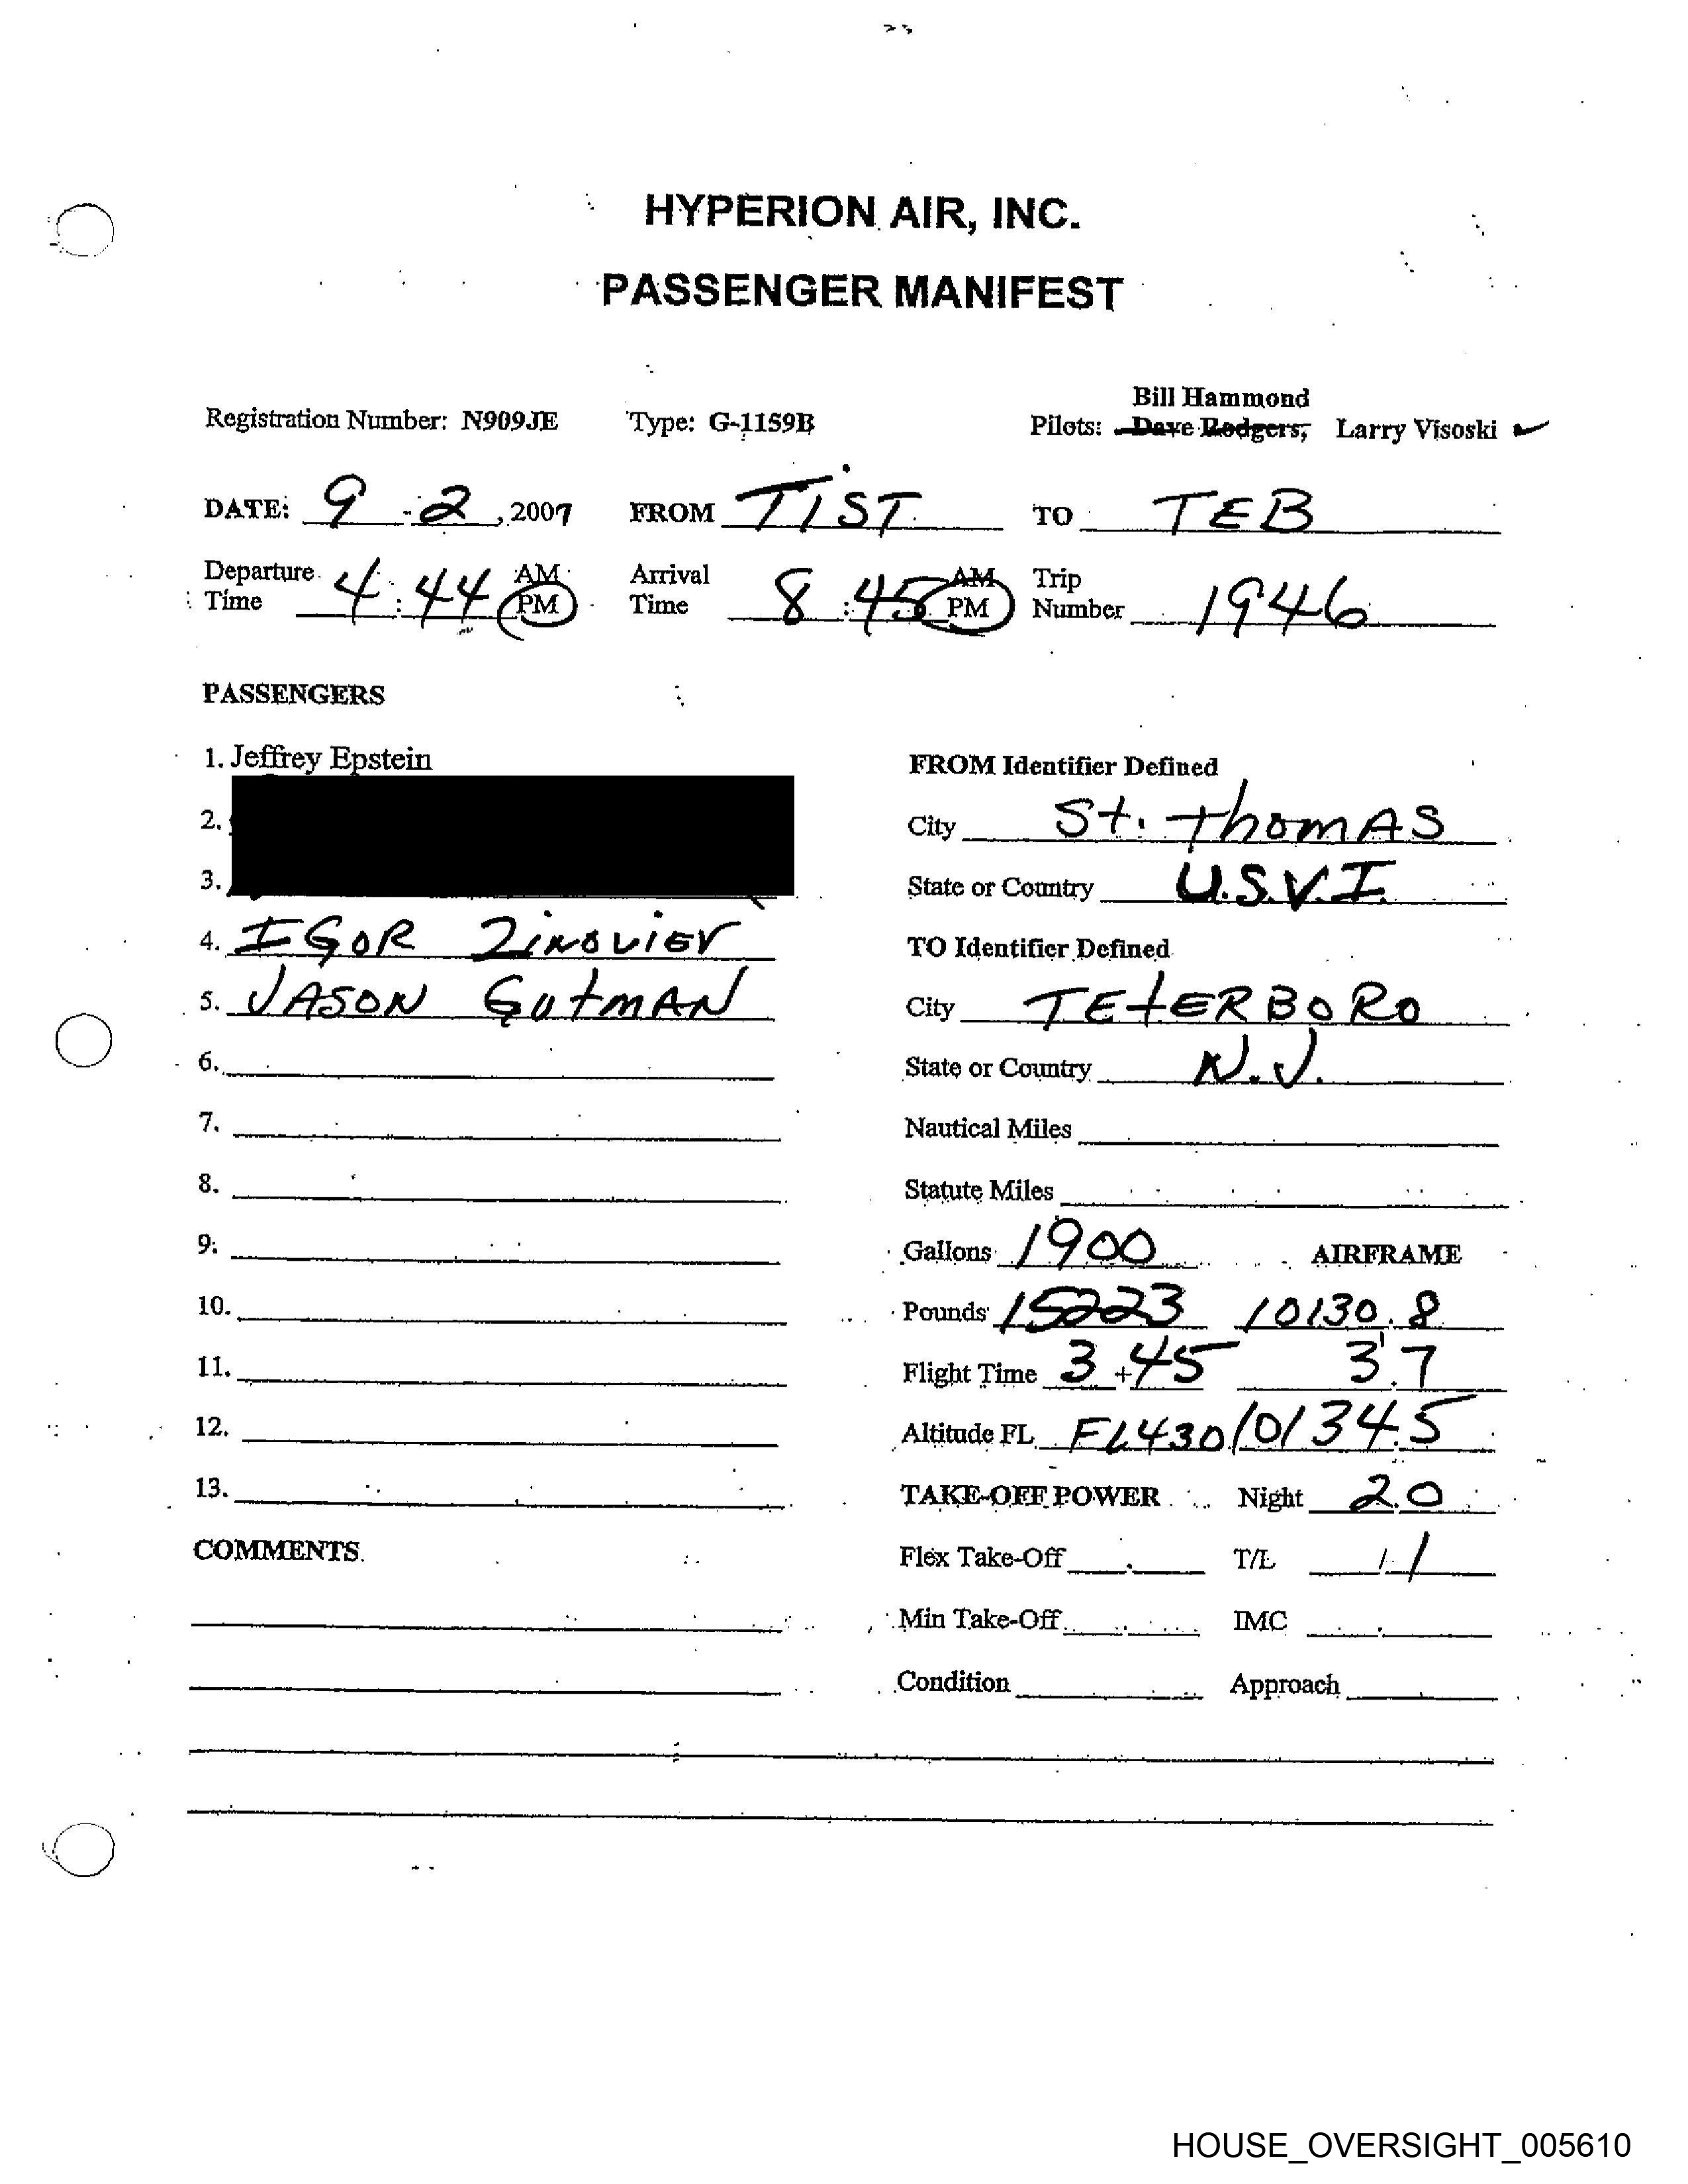 HYPERION AIR, INC.
PASSENGER MANIFEST
Bill Hammond
Registration Number: N909JE Type: G-1159B Pilots: Dave Rodgers, Larry Visoski
DATE: 9 - 2, 2007 FROM TIST TO TEB
Departure Time 4:44 AM PM Arrival Time 8:45 AM PM Trip Number 1946
PASSENGERS
1. Jeffrey Epstein
2.
3.
4. IGOR ZINOVIEV
5. JASON GUtMAN
6.
7.
8.
9.
10.
11.
12.
13.
COMMENTS
FROM Identifier Defined
City St. thomAS
State or Country U.S.V.I.
TO Identifier Defined
City TEtERBORO
State or Country N.J.
Nautical Miles
Statute Miles
Gallons 1900 AIRFRAME
Pounds 15223 10130.8
Flight Time 3+45 3.7
Altitude FL FL430 10134.5
TAKE-OFF POWER Night 2.0
Flex Take-Off T/L 1/1
Min Take-Off IMC
Condition Approach
HOUSE_OVERSIGHT_005610